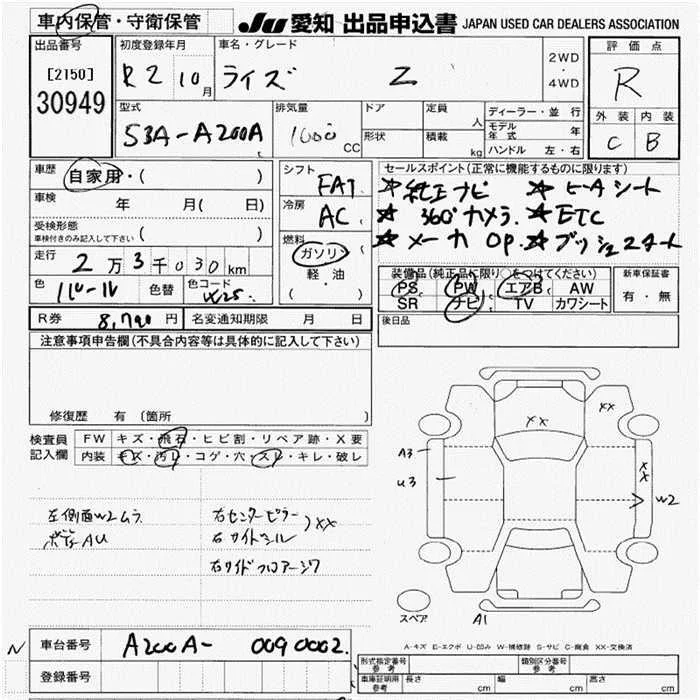 車内保管・守衛保管 JU 愛知 出品申込書 JAPAN USED CAR DEALERS ASSOCIATION
出品番号 初度登録年月 車名・グレード 評価点
[2150] R2 10月 ライズ Z 2WD・4WD R
30949 型式 排気量 ドア 定員 人 ディーラー・並行 外装 内装
モデル年式 年
S3A-A200A 1000 CC 形状 積載 kg ハンドル 左・右 C B
車歴 自家用・( ) シフト FAT セールスポイント(正常に機能するものに限ります)
車検 年 月( 日) 冷房 AC ☆純正ナビ ☆ヒートシート
受検形態 車検付きのみ記入して下さい ( ) 燃料 ガソリン ☆360°カメラ ☆ETC
走行 2万3千030km 軽・油 ☆メーカOP ☆プッシュスタート
色 パール 色替 色コード W25 ( ) 装備品(純正品に限り○をつけてください) 新車保証書
PS PW エアB AW 有・無
SR ナビ TV カワシート
R券 8,790円 名変通知期限 月 日 後日品
注意事項申告欄(不具合内容等は具体的に記入して下さい)
修復歴 有 (箇所 )
検査員記入欄 FW キズ・飛石・ヒビ割・リペア跡・X要
内装 キズ・汚レ・コゲ・穴・スレ・キレ・破レ
XX XX
A3
U3 XX
W2
左側面W2ムラ 右センターピラー
右サイドシル XX
AU
右サイドフロアージワ
スペア A1
A-キズ E-エクボ U-凹み W-補修跡 S-サビ C-腐食 XX-交換済
N 車台番号 A200A- 0090002.
登録番号
形式指定番号 参考 類別区分番号 参考
車庫証明用 参考 長さ cm 幅 cm 高さ cm